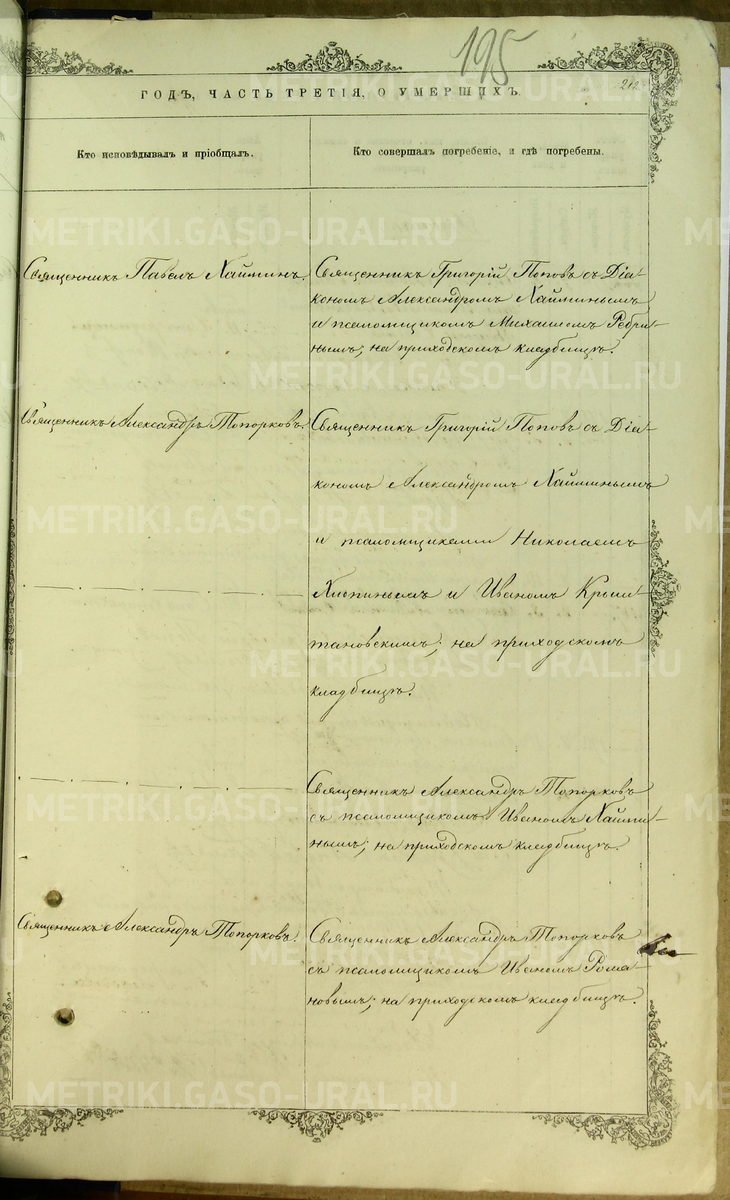 195
212
ГОДЪ, ЧАСТЬ ТРЕТІЯ, О УМЕРШИХЪ.
Кто исповѣдывалъ и пріобщалъ.
Кто совершалъ погребеніе, и гдѣ погребены.
Священникъ Павелъ Хайминъ.
Священникъ Григорій Поповъ съ Діа-
кономъ Александромъ Хайминымъ
и псаломщикомъ Михаиломъ Ребри-
нымъ; на приходскомъ кладбищѣ.
Священникъ Александръ Топорковъ.
Священникъ Григорій Поповъ съ Діа-
кономъ Александромъ Хайминымъ
и псаломщиками Николаемъ
и Иваномъ Крыш-
тановскимъ; на приходскомъ
кладбищѣ.
Священникъ Александръ Топорковъ
съ псаломщикомъ Иваномъ Хайми-
нымъ; на приходскомъ кладбищѣ.
Священникъ Александръ Топорковъ.
Священникъ Александръ Топорковъ
съ псаломщикомъ Иваномъ Рома-
новымъ; на приходскомъ кладбищѣ.
METRIKI.GASO-URAL.RU